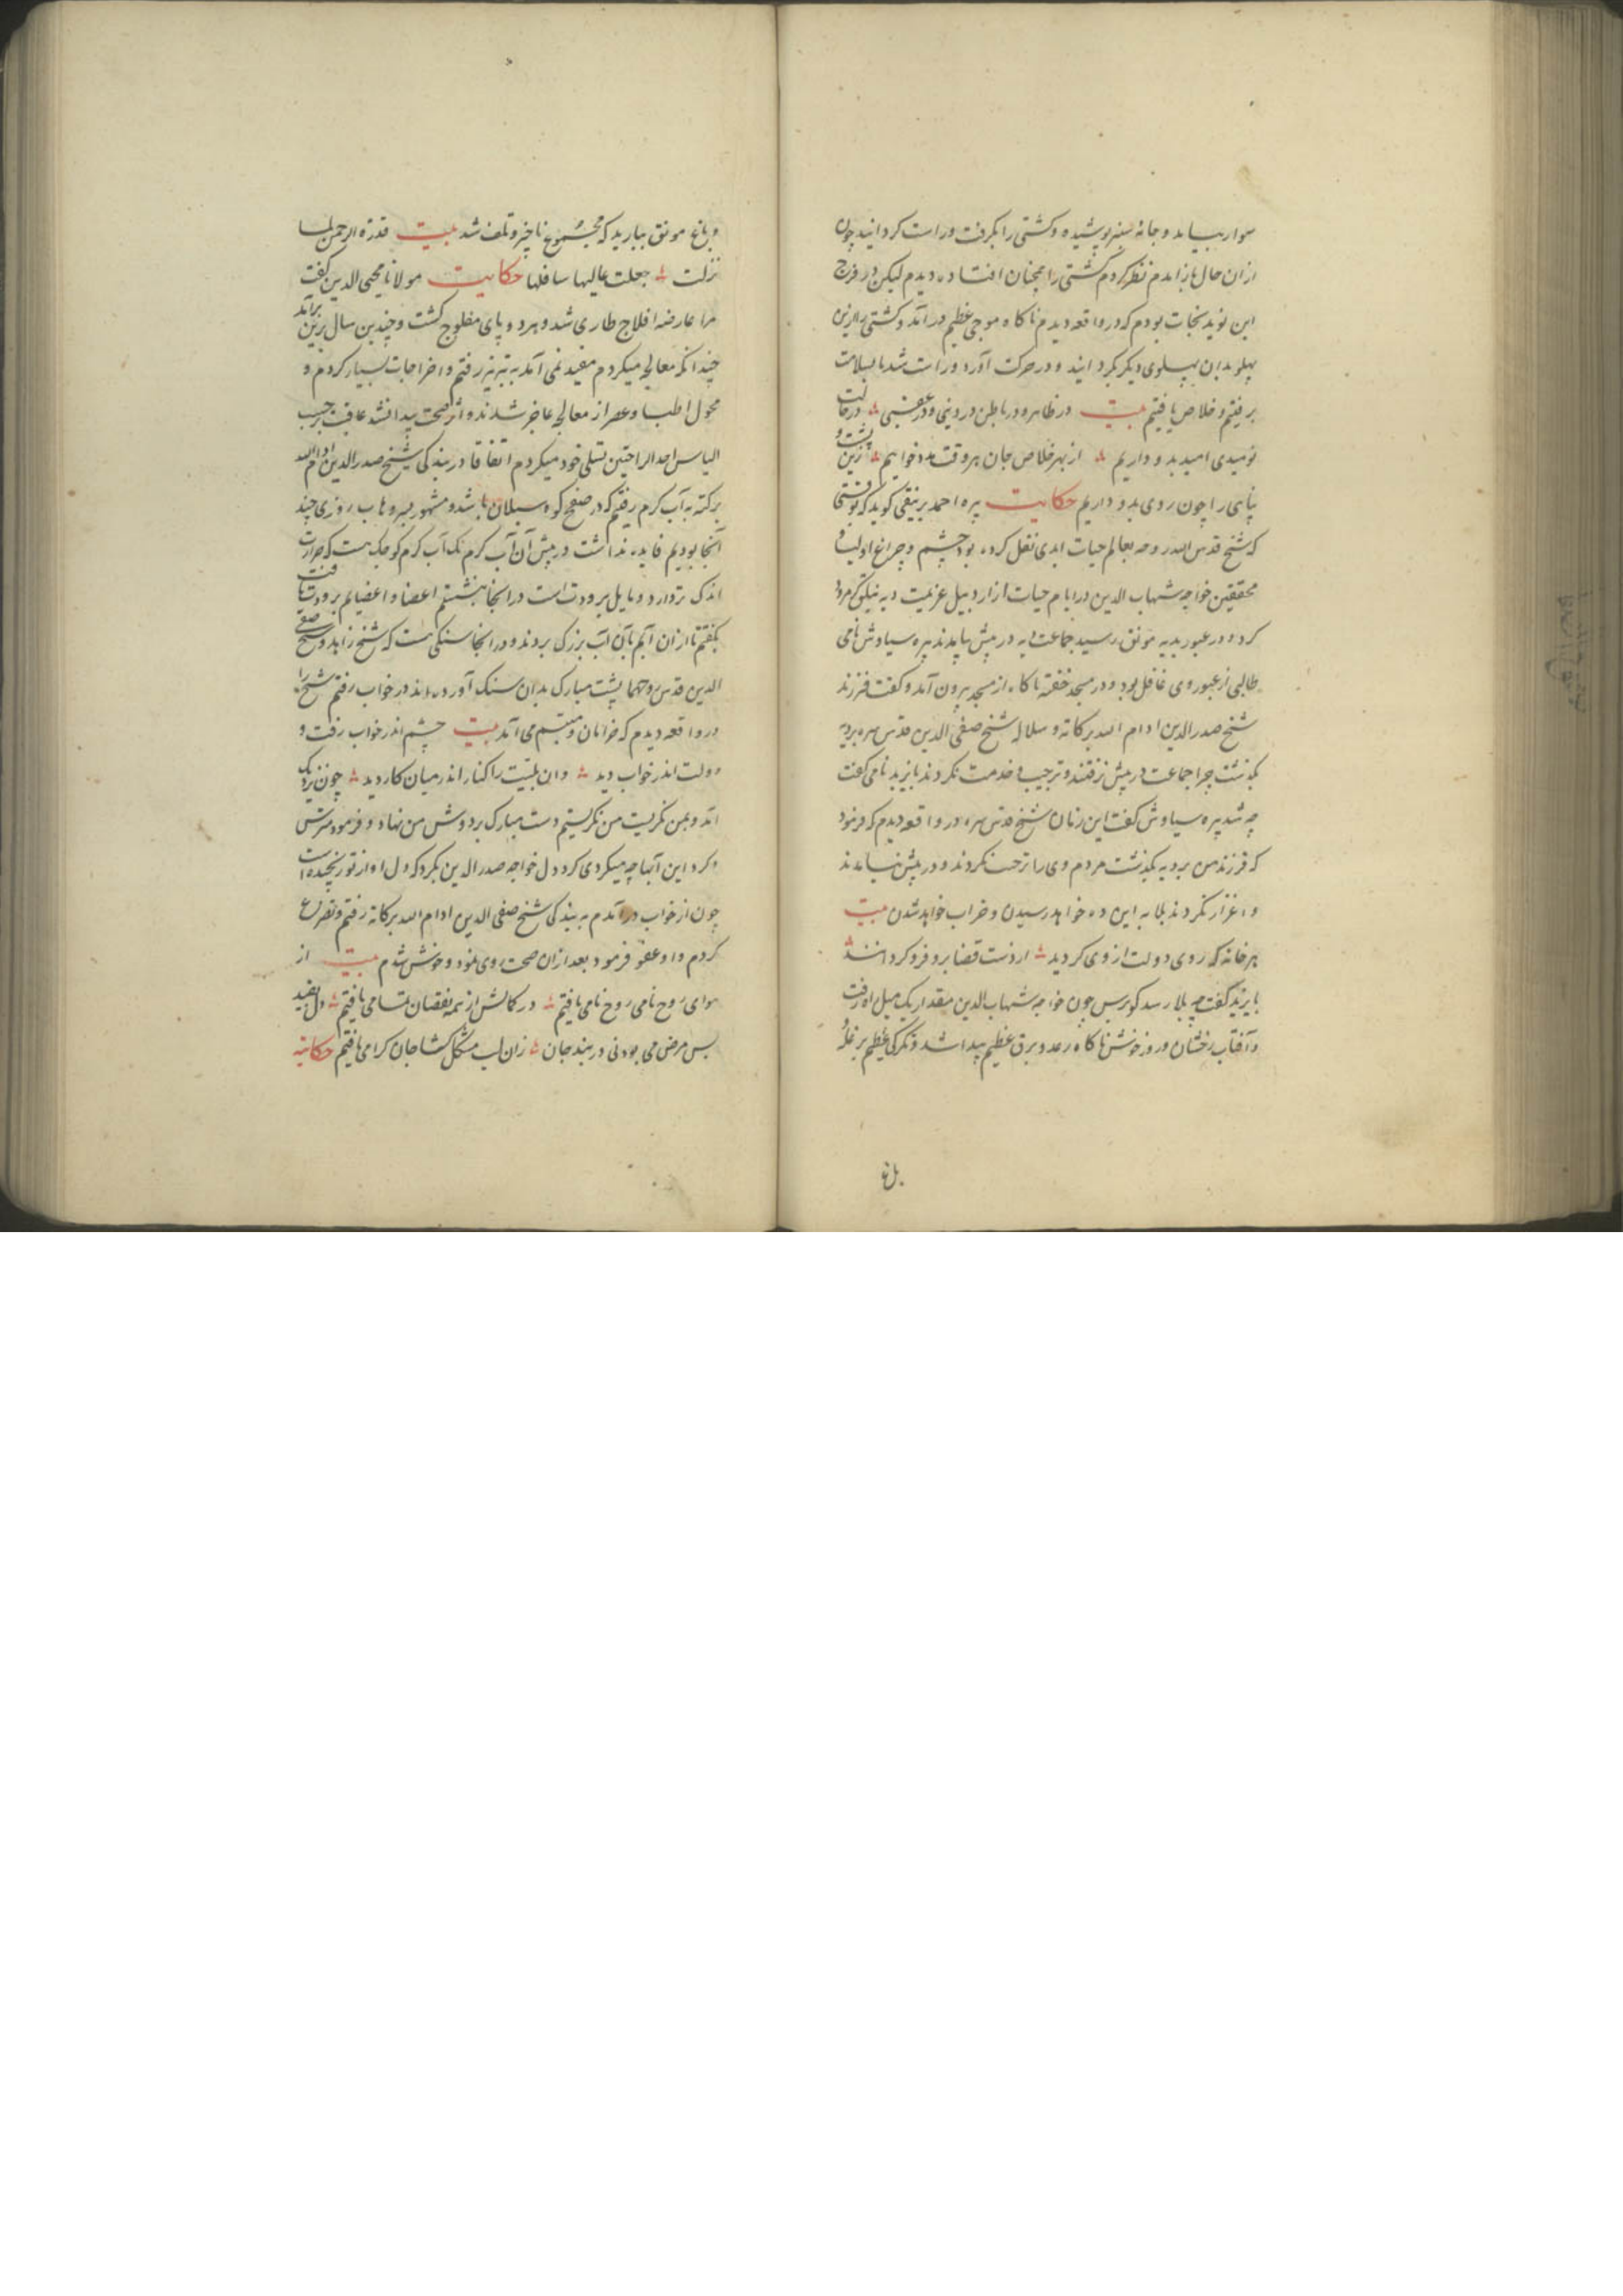 سوار بیامد و جامه سبز پوشیده و کشتی را بگرفت و راست گردانید چون
از ان حال باز امدم نظر کردم کشتی را همچنان افتاده دیدم لیکن در فرح
این نوید نجات بودم که در واقعه دیدم ناکاه موجی عظیم درآمد و کشتی را ازین
پهلو بدان پهلوی دیکر بگردانید و در حرکت آورد و راست شد تا بسلامت
برفتیم و خلاص یافتیم بیت در ظاهر و در باطن در دینی و در عقبی در حالت
نومیدی امید بدو داریم از بهر خلاص جان هر وقت مدد خواهیم زین پشت و
پناهی را چون روی بدو داریم حکایت پیره احمد برنیقی کوید که نوبتی
که شیخ قدس الله روحه بعالم حیات ابدی نقل کرده بود چشم و چراغ اولیا و
محققین خواجه شهاب الدین در ایام حیات از اردبیل عزیمت دیه کرمرود
کرد و در عبور بدیه مونق رسید جماعت دیه در پیش نیامدند پیره سیاوش نامی
طالبی از عبور وی غافل بود و در مسجد خفته ناکاه از مسجد بیرون آمد و کفت فرزند
شیخ صدرالدین ادام الله برکاته و سلاله شیخ صفی الدین قدس سره بر دیه
بکذشت چرا جماعت در پیش نرفتند و ترحیب و خدمت نکردند بایزید نامی کفت
چه شد پیره سیاوش کفت این زمان شیخ قدس سره در واقعه دیدم که فرمود
که فرزند من بر دیه بکذشت مردم وی را ترحیب نکردند و در پیش نیامدند
و اعزاز نکردند بلا به این ده خواهد رسیدن و خراب خواهد شدن بیت
هر خانه که روی دولت از وی کردید از دست قضا برد فرو کردانند
بایزید کفت چه بلا رسد کو برس چون خواجه شهاب الدین مقدار یک میل راه رفت
و آفتاب رخشان و روز خوش ناکاه رعد و برق عظیم پیدا شد و تکرکی عظیم بر غله
و باغ
و باغ مونق ببارید که مجموع ناچیز و تلف شد بیت قدرة الرحمن لما
نزلت جعلت عالیها سافلها حکایت مولانا محیی الدین کفت
مرا عارضه افلاج طاری شد و هر دو پای مفلوج کشت و چندین سال برین برآمد
چندانکه معالجه میکردم مفید نمی آمد به تبریز رفتم و اخراجات بسیار کردم و
فحول اطبا و عصر از معالجه عاجز شدند و اثر صحت پیدا نشد عاقبت بر حسب
الیاس احد الراحتین تسلی خود میکردم اتفاقا در بندکی شیخ صدرالدین ادام الله
برکته به آب کرم رفتم که در صفح کوه سبلان باشد و مشهور روزی چند
آنجا بودیم فایده نداشت در پیش آن آب کرم یک آب کرم کوچک هست که حرارت
اندک تر دارد و مایل برودت است در انجا بنشستم اعضا و اعضایم برودت یافت
بکفتم تا از ان آبم بآن آب بزرک بردند و در انجا سنکی هست که شیخ زاهد و شیخ صفی
الدین قدس روحهما پشت مبارک بدان سنک آورده اند در خواب رفتم شیخ را
در واقعه دیدم که خرامان و متبسم می آمد بیت چشم اندر خواب رفت و
دولت اندر خواب دید وان بلیت را کنار اندر میان کار دید چون نزدیک
آمد و بمن نکریست من نکریستم دست مبارک بر دوش من نهاد و فرمود
و کرد این آبها چه میکردی کرد دل خواجه صدرالدین بکرد که دل او از تو رنجیده است
چون از خواب درآمدم به بندکی شیخ صفی الدین ادام الله برکاته رفتم و تضرع
کردم و او عفو فرمود بعد از ان صحت روی نمود و خوش شدم بیت از
هوای روح نامی روح نامی یافتیم در کمالش از همه نقصان تمامی یافتیم دل
بس مرض می بودنی در بند جان زان لب مشکل کشا جان کرامی یافتیم حکایة